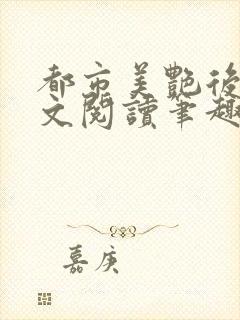 都市美艷後
文閱讀筆趣
嘉庚